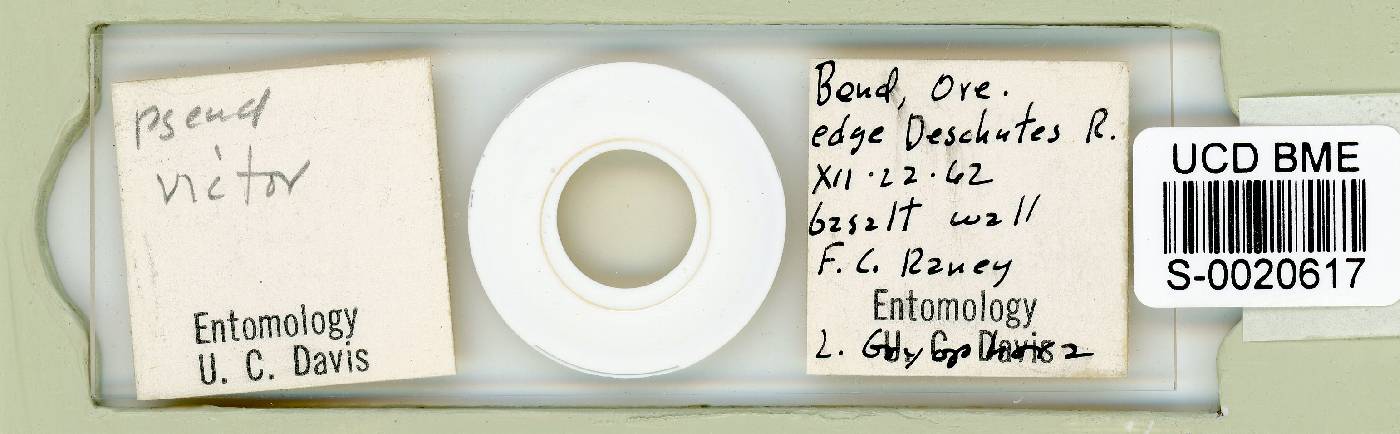 pseud
victor
Entomology
U. C. Davis
Bend, Ore.
edge Deschutes R.
XII·22·62
basalt wall
F. C. Raney
Entomology
U. C. Davis
L.
UCD BME
S-0020617